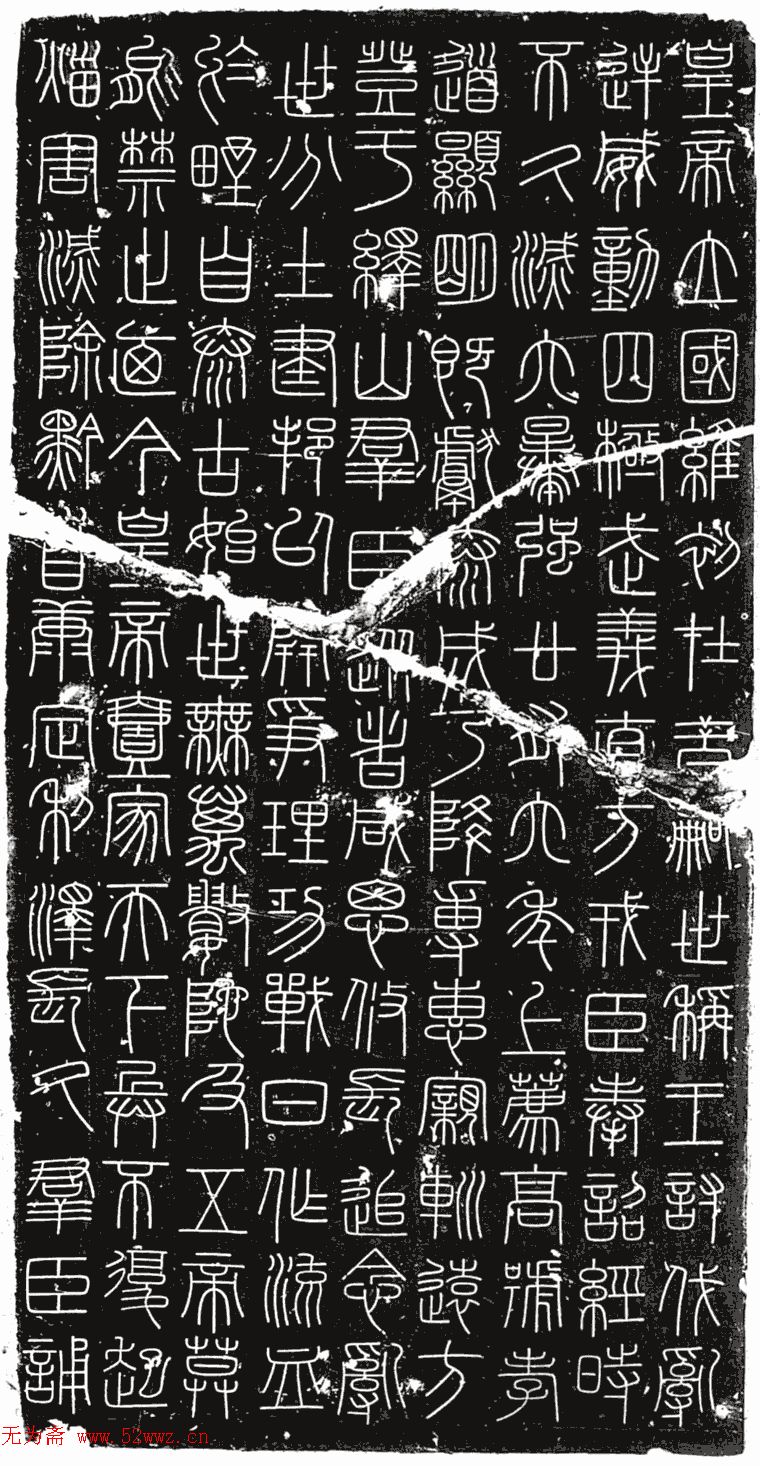 皇帝立國維初在昔嗣世稱王討伐亂
逆威動四極武義直方戎臣奉詔經時
不久滅六暴強廿有六年上薦高號孝
道顯明既獻泰成乃降專惠親䡅遠方
登于繹山羣臣從者咸思攸長追念亂
世分土建邦以開爭理功戰日作流血
於野自泰古始世無萬數陀及五帝莫
能禁止迺今皇帝壹家天下兵不復起
災害滅除黔首康定利澤長久羣臣誦
无为斋 www.52wwz.cn